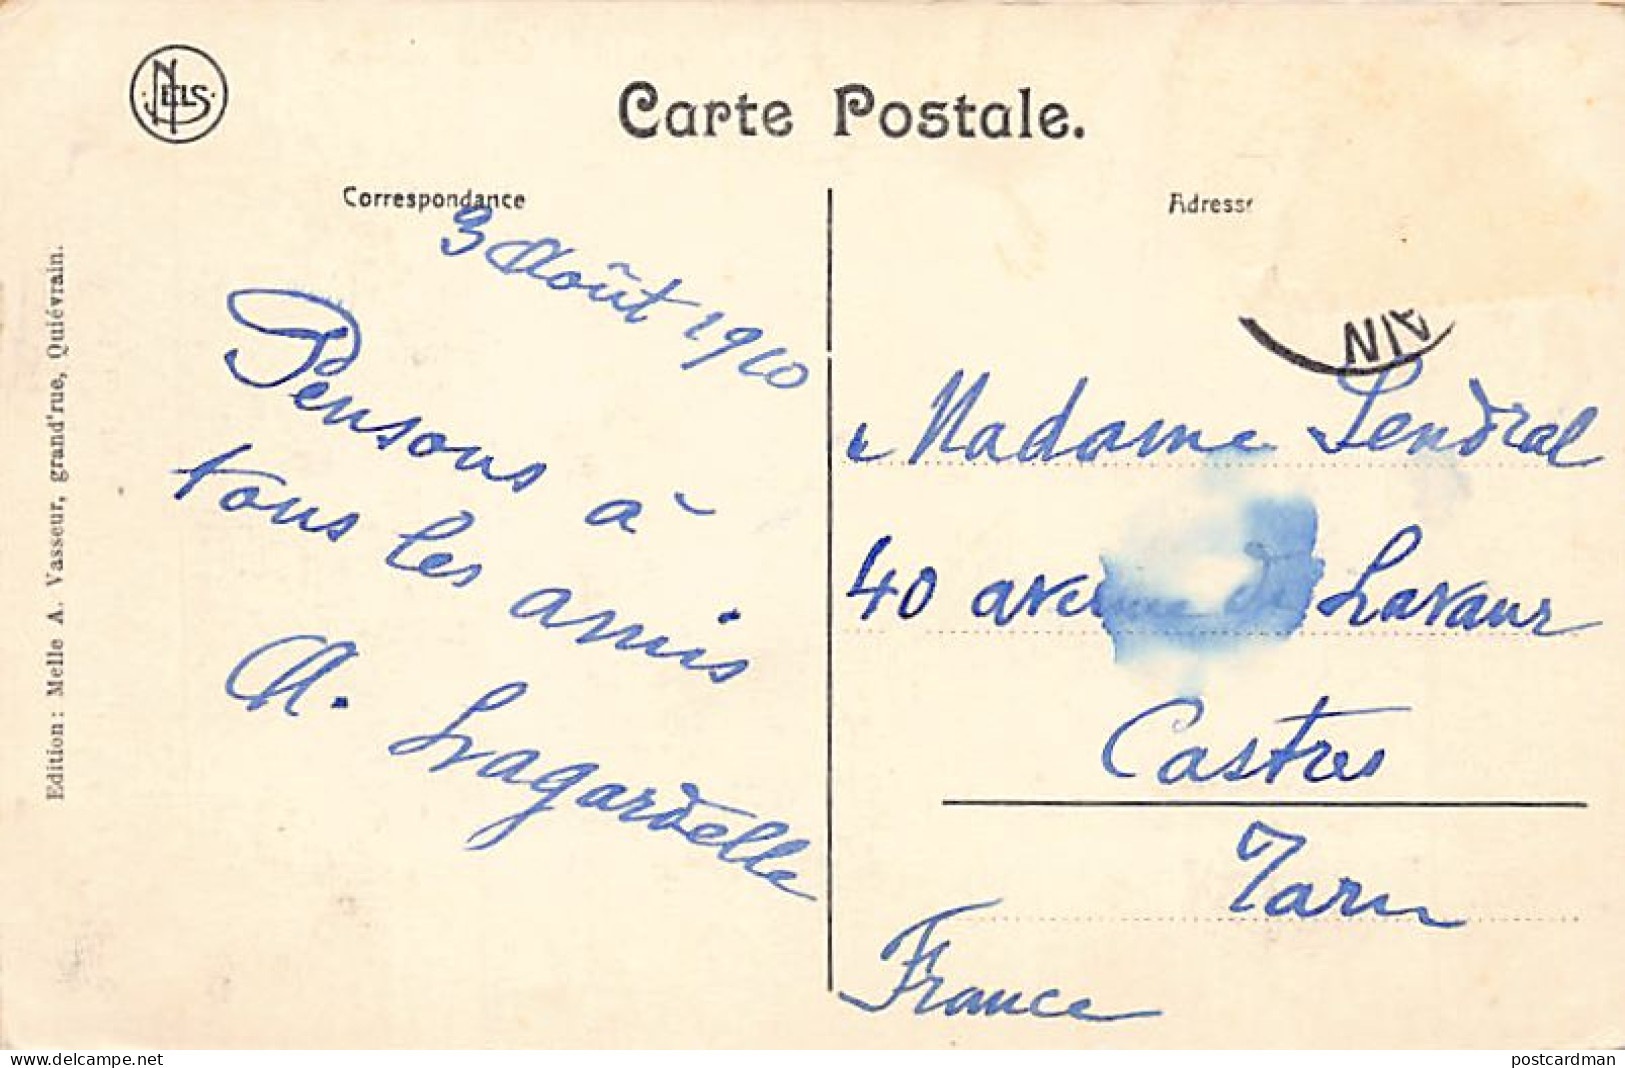 NELS
Carte Postale.
Correspondance
Adresse
3 Août 1910
Pensons à
tous les amis
M. Lagardelle
AIN
Madame Sendral
40 avenue de Lavaur
Castres
Tarn
France
Edition: Melle A. Vasseur, grand'rue, Quiévrain.
www.delcampe.net
postcardman